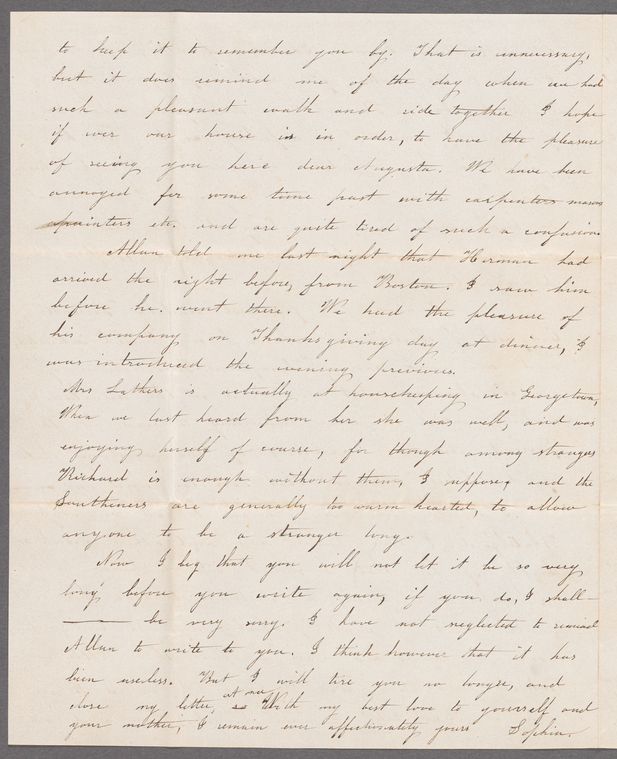 to keep it to remember you by. That is unnecessary,
but it does remind me of the day when we had
such a pleasant walk and ride together I hope
if ever our house is in order, to have the pleasure
of seeing you here dear Augusta. We have been
annoyed for some time past with carpenters masons
painters etc. and are quite tired of such a confusion
Allan told me last night that Herman had
arrived the night before, from Boston. I saw him
before he went there. We had the pleasure of
his company on Thanksgiving day at dinner, I
was introduced the evening previous.
Mrs Lathers is actually at housekeeping in Georgetown,
When we last heard from her she was well, and was
enjoying herself of course, for though among strangers
Richard is enough without them, I suppose, and the
Southeners are generally too warm hearted, to allow
anyone to be a stranger long.
Now I beg that you will not let it be so very
long before you write again, if you do, I shall —
—— be very sorry. I have not neglected to remind
Allan to write to you. I think however that it has
been useless. But I will tire you no longer, and
close my letter, at once With my best love to yourself and
your mother, I remain ever affectionately yours Sophia.